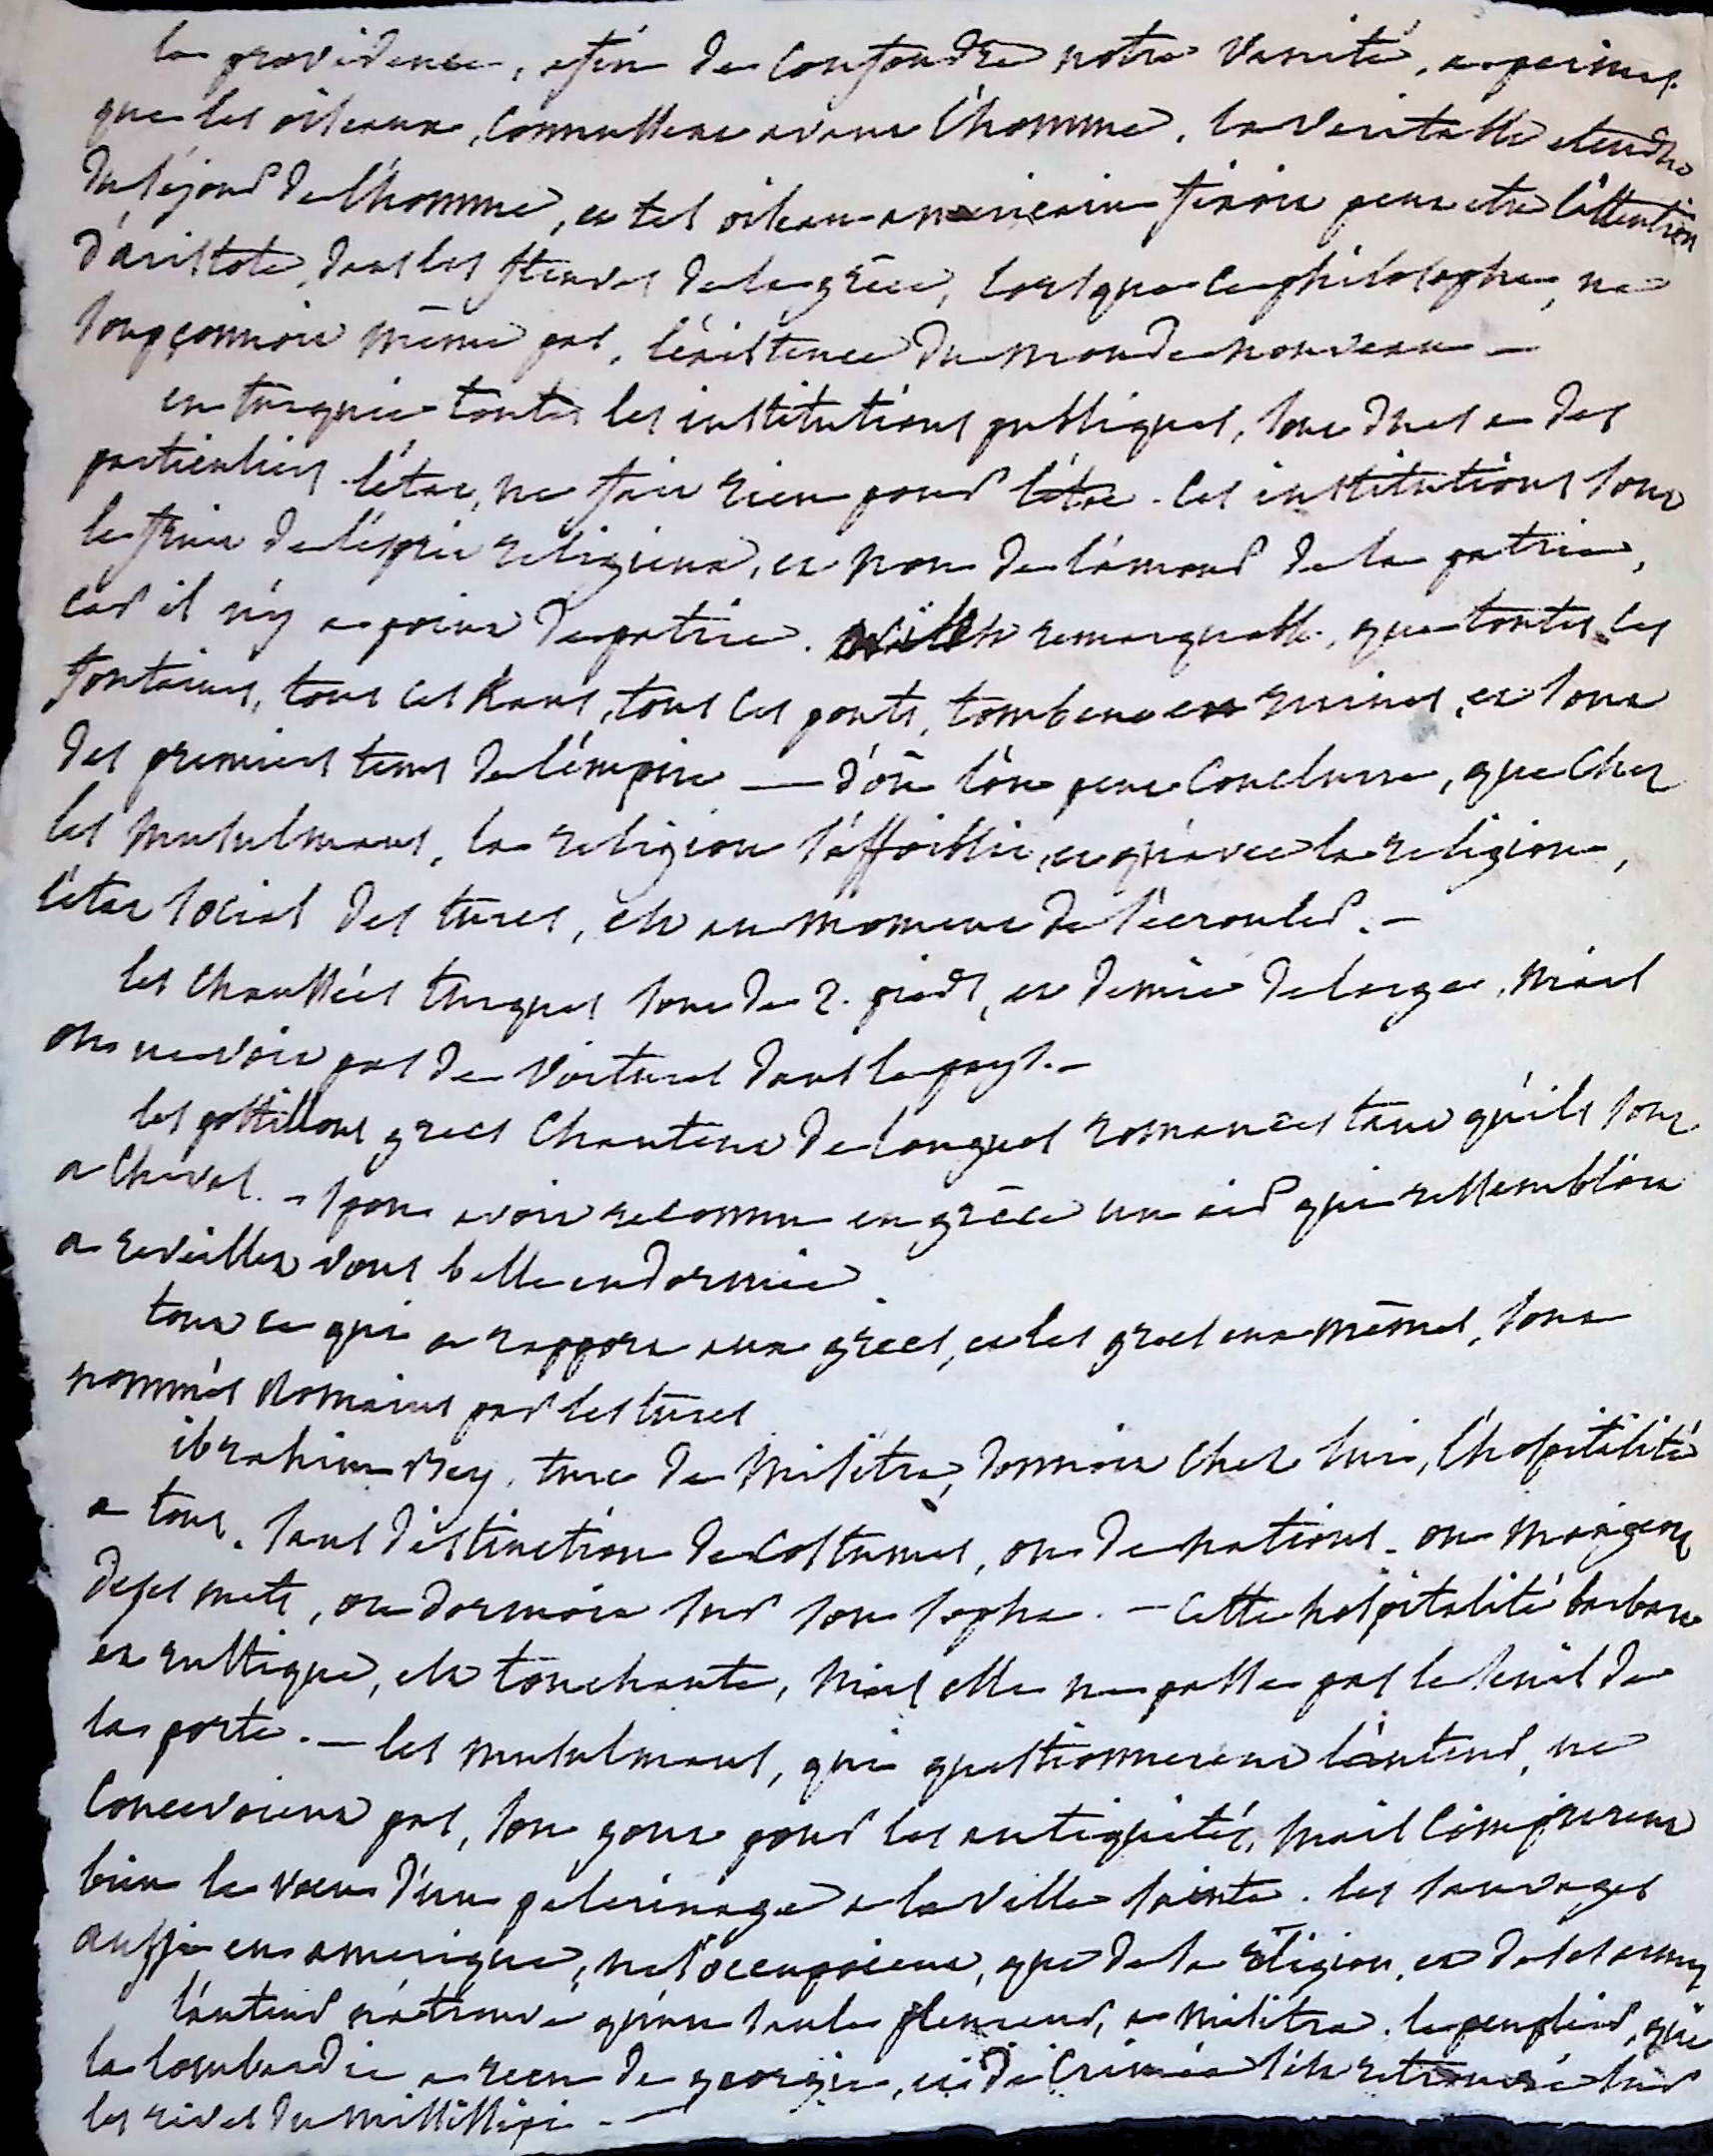 la providence, afin de confondre notre vanité, a permis
que les oiseaux, connussent avant l'homme, la veritable etendue
du séjour de l'homme, et tel oiseau americain fixoit peut etre l'attention
d'aristote, dans les fleuves de la grèce, lorsque ce philosophe, ne
soupçonnoit même pas, l'existence du monde nouveau —
en turquie toutes les institutions publiques, sont dues a des
particuliers. l'état, ne fait rien pour l'état. ces institutions sont
le fruit de l'esprit religieux, et non de l'amour de la patrie,
car il n'y a point de patrie. remarquable, que toutes ces
fontaines, tous ces kans, tous ces ponts, tombent en ruines, et sont
des premiers tems de l'empire — d'où l'on peut conclure, que chez
les musulmans, la religion s'affoiblit, et qu'avec la religion,
l'état social des turcs, est au moment de s'écrouler. —
les chaussées turques sont de 2. pieds, et demie de large, mais
on ne voit pas de voitures dans le pays. —
les postillons grecs chantent de longues romances tant qu'ils sont
a cheval. — spon avoit reconnu en grèce un air qui ressembloit
a reveillez vous belle endormie
tout ce qui a rapport aux grecs, et les grecs eux mêmes, sont
nommés Romains par les turcs
ibrahim Bey, turc de Misitra, donnoit chez lui, l'hospitalité
a tous, sans distinction de costumes, ou de nations. on mangeoit
de ses mets, on dormoit sur son sopha. — cette hospitalité barbare
et rustique, est touchante, mais elle ne passe pas le seuil de
la porte. — les musulmans, qui questionnerent l'auteur, ne
concevoient pas, son gout pour les antiquités, mais comprirent
bien le voeu d'un pelerinage a la ville sainte. les sauvages
aussi en amerique, ne s'occupoient, que de la religion, et de ses armes
l'auteur n'a trouvé qu'un saule pleureur, a misitra. le peuplier, que
la lombardie a reçu de georgie, et de Crimée s'est retrouvé sur
les rives du mississipi. —